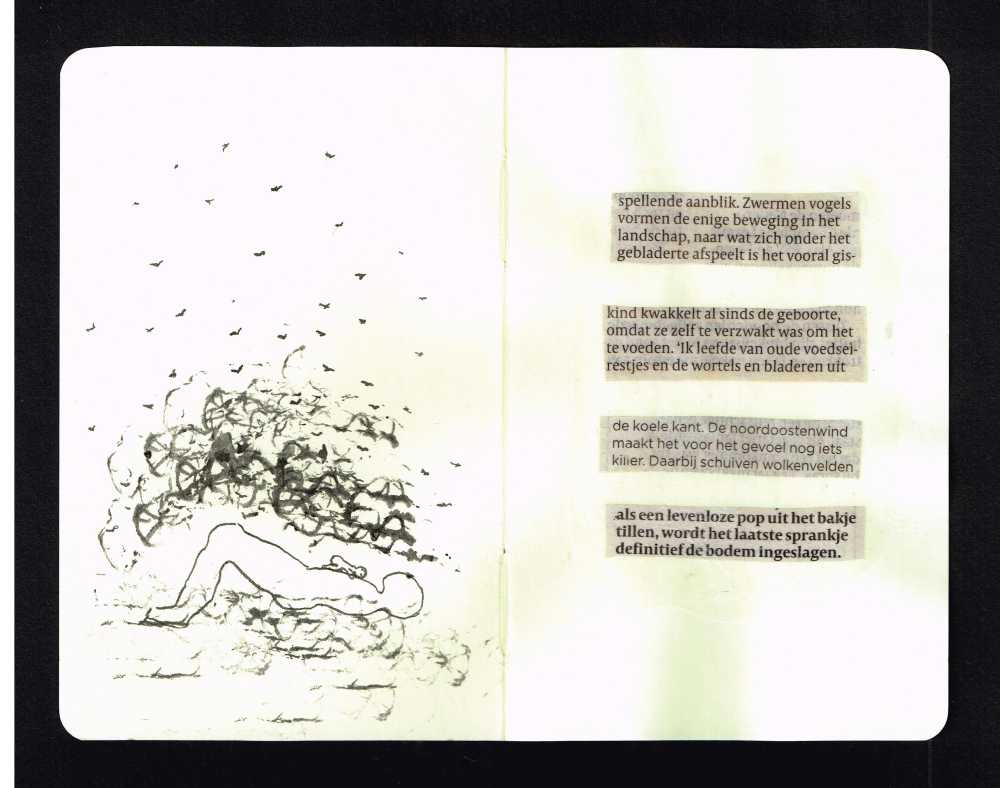 spellende aanblik. Zwermen vogels
vormen de enige beweging in het
landschap, naar wat zich onder het
gebladerte afspeelt is het vooral gis-
kind kwakkelt al sinds de geboorte,
omdat ze zelf te verzwakt was om het
te voeden. ‘Ik leefde van oude voedsel-
restjes en de wortels en bladeren uit
de koele kant. De noordoostenwind
maakt het voor het gevoel nog iets
killer. Daarbij schuiven wolkenvelden
als een levenloze pop uit het bakje
tillen, wordt het laatste sprankje
definitief de bodem ingeslagen.